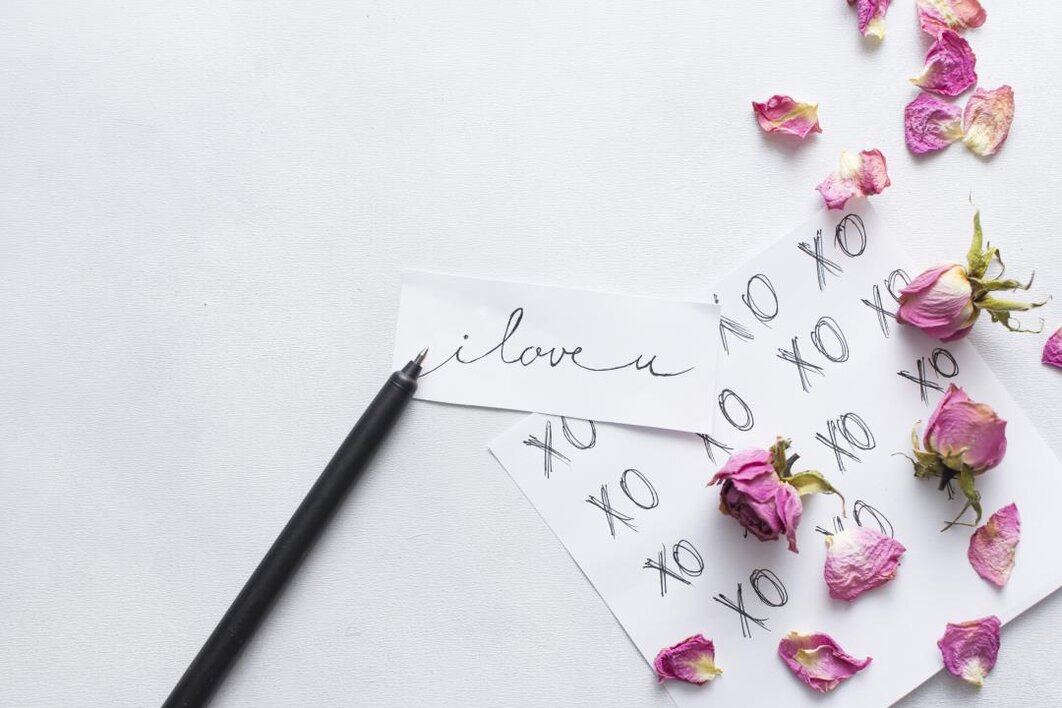 i love u
XO
XO
XO
XO
XO
XO
XO
XO
XO
XO
XO
XO